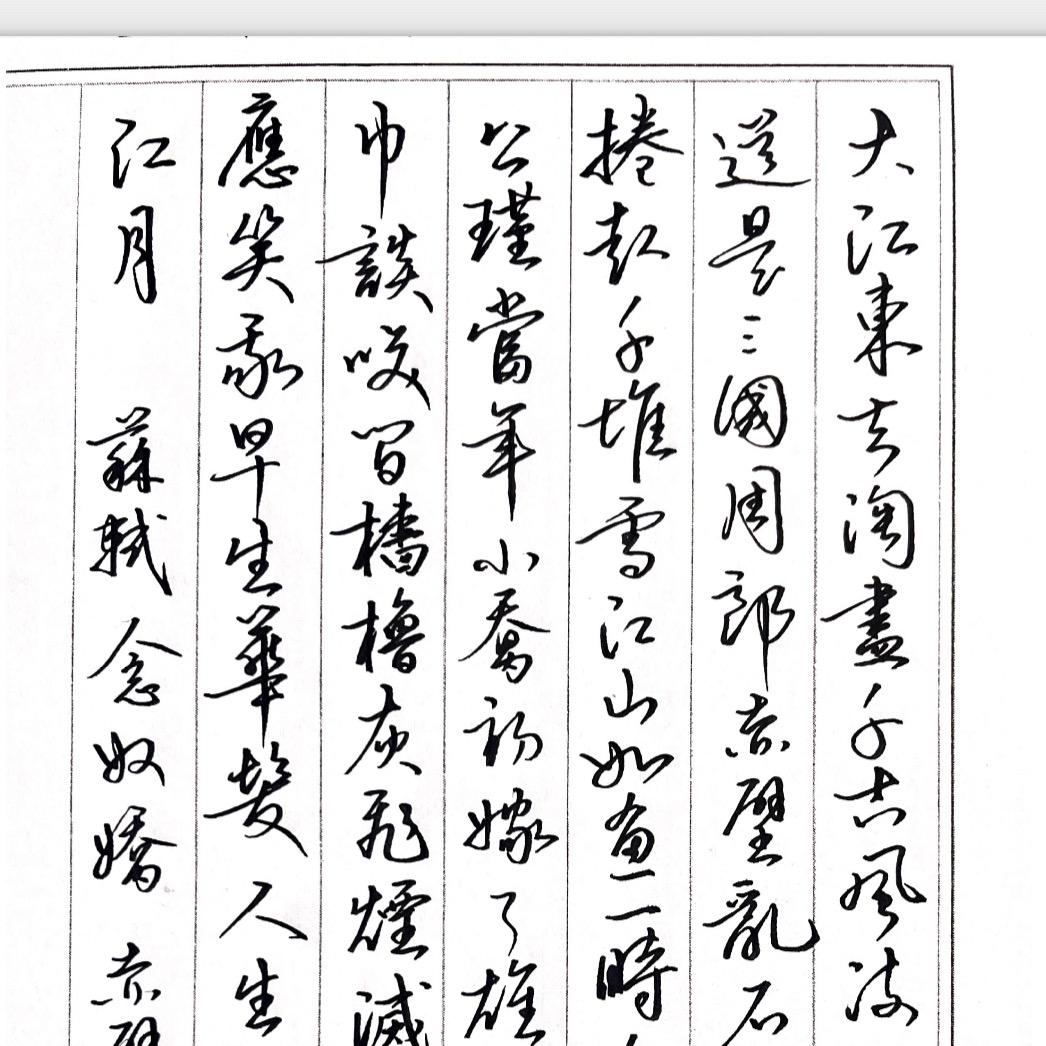 大江東去淘盡千古風流
道是三國周郎赤壁亂石
捲起千堆雪江山如畫一時
公瑾當年小喬初嫁了雄
巾談咲間檣櫓灰飛煙滅
應笑我早生華髮人生
江月 蘇軾 念奴嬌 赤壁